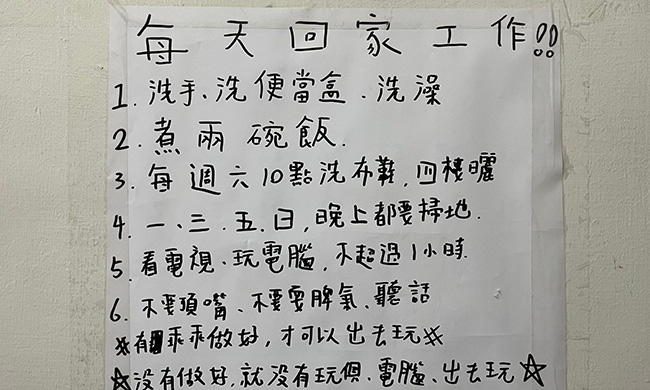 每天回家工作!!
1. 洗手、洗便當盒、洗澡
2. 煮兩碗飯.
3. 每週六10點洗布鞋,四樓曬
4. 一、三、五、日,晚上都要掃地.
5. 看電視、玩電腦,不超過1小時.
6. 不要頂嘴、不要耍脾氣、聽話
※有乖乖做好,才可以出去玩※
☆沒有做好,就沒有玩俱、電腦、出去玩☆